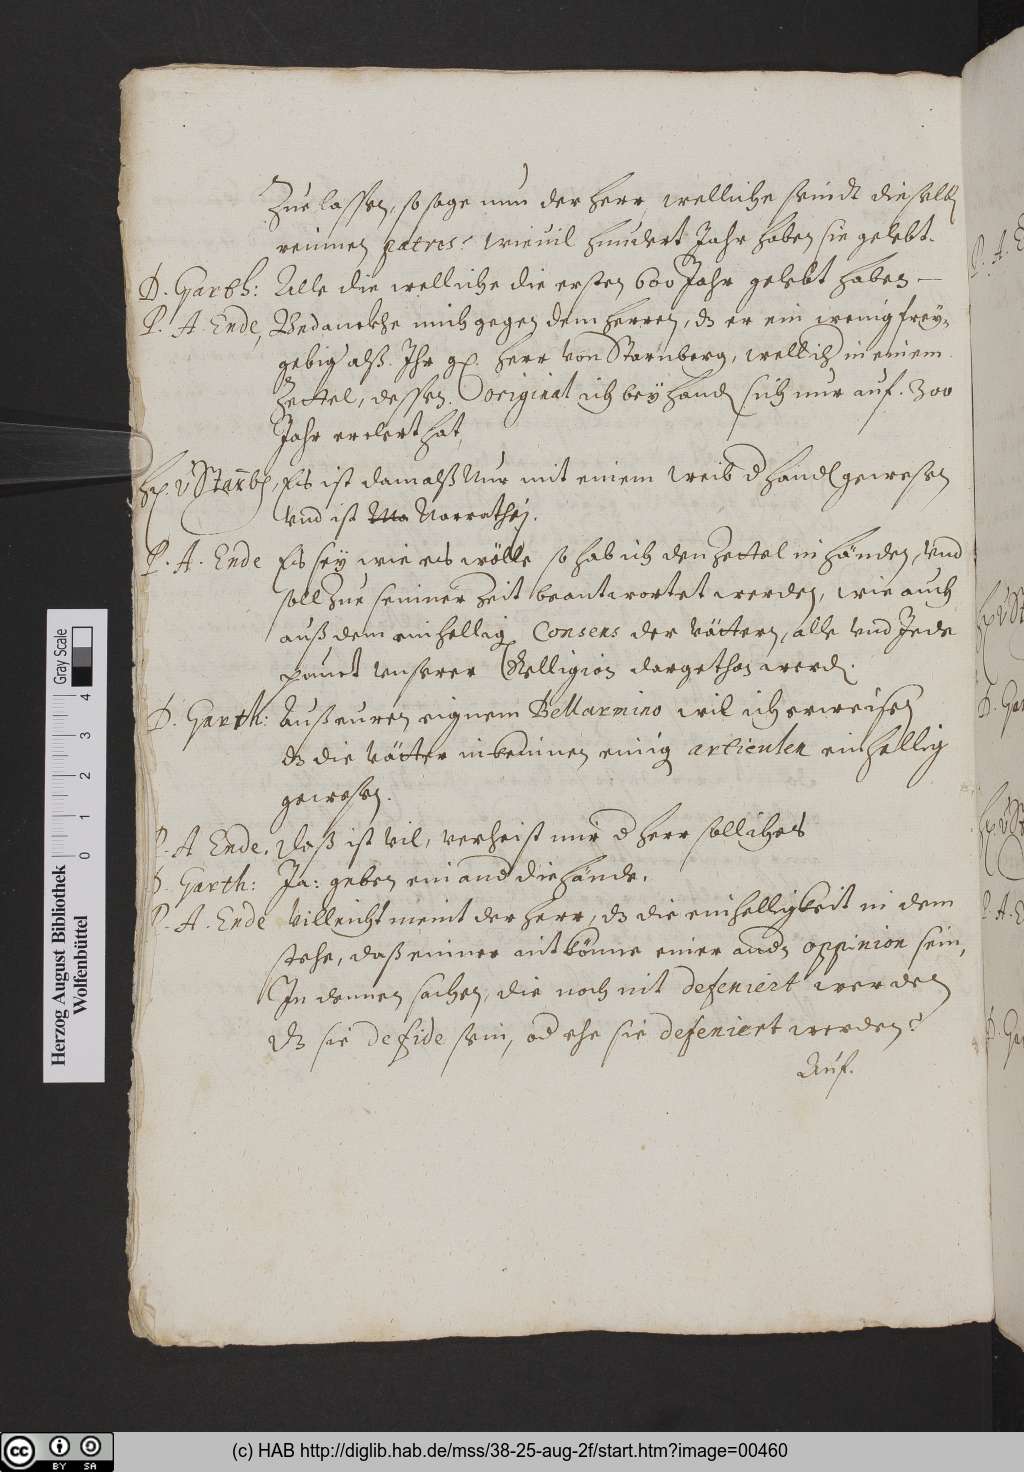 Zue lassen, so sage nun der herr, welliche seindt dieselbe
reinnen patres, wieuil hundert Jahr haben sie gelebt.
D. Garth: Alle die welliche die ersten 600 Jahr gelebt haben —
P. A. Ende, Bedanckhe mich gegen dem herren, dz er ein wenig frey-
gebig alß. Ihr g. herr von Starnberg, wellich in einem
Zettel, dessen original ich bey hand sich nur auf. 300
Jahr erclert hat,
H. v Starnb, Es ist damalß Nur mit einem weib d handl gewesen
vnd ist Narrathej.
P. A. Ende Es sey wie es wölle so hab ich den Zettel in händen, vnd
soll Zue seinner Zeit beantwortet werden, wie auch
auß dem einhellig Consens der Vättern, alle vnd Jede
punct vnserer Relligion dargethan werd.
D. Garth: Auß euren eignem Bellarmino wil ich erweisen
dz die Vätter in keinnen einig articulen einhellig
gewesen.
P. A Ende. daß ist vil, verheist mir d herr solliches
D. Garth: Ja: geben einand die hände.
P. A. Ende villeicht meint der herr, dz die einhelligkeit in dem
stehe, daß einner nit könne einer and oppinion sein,
In dennen sachen, die noch nit defeniert werden
dz sie de fide sein, od ehe sie defeniert werden?
Auf.
Herzog August Bibliothek
Wolfenbüttel
0 1 2 3 4
Gray Scale
cc BY SA
(c) HAB http://diglib.hab.de/mss/38-25-aug-2f/start.htm?image=00460